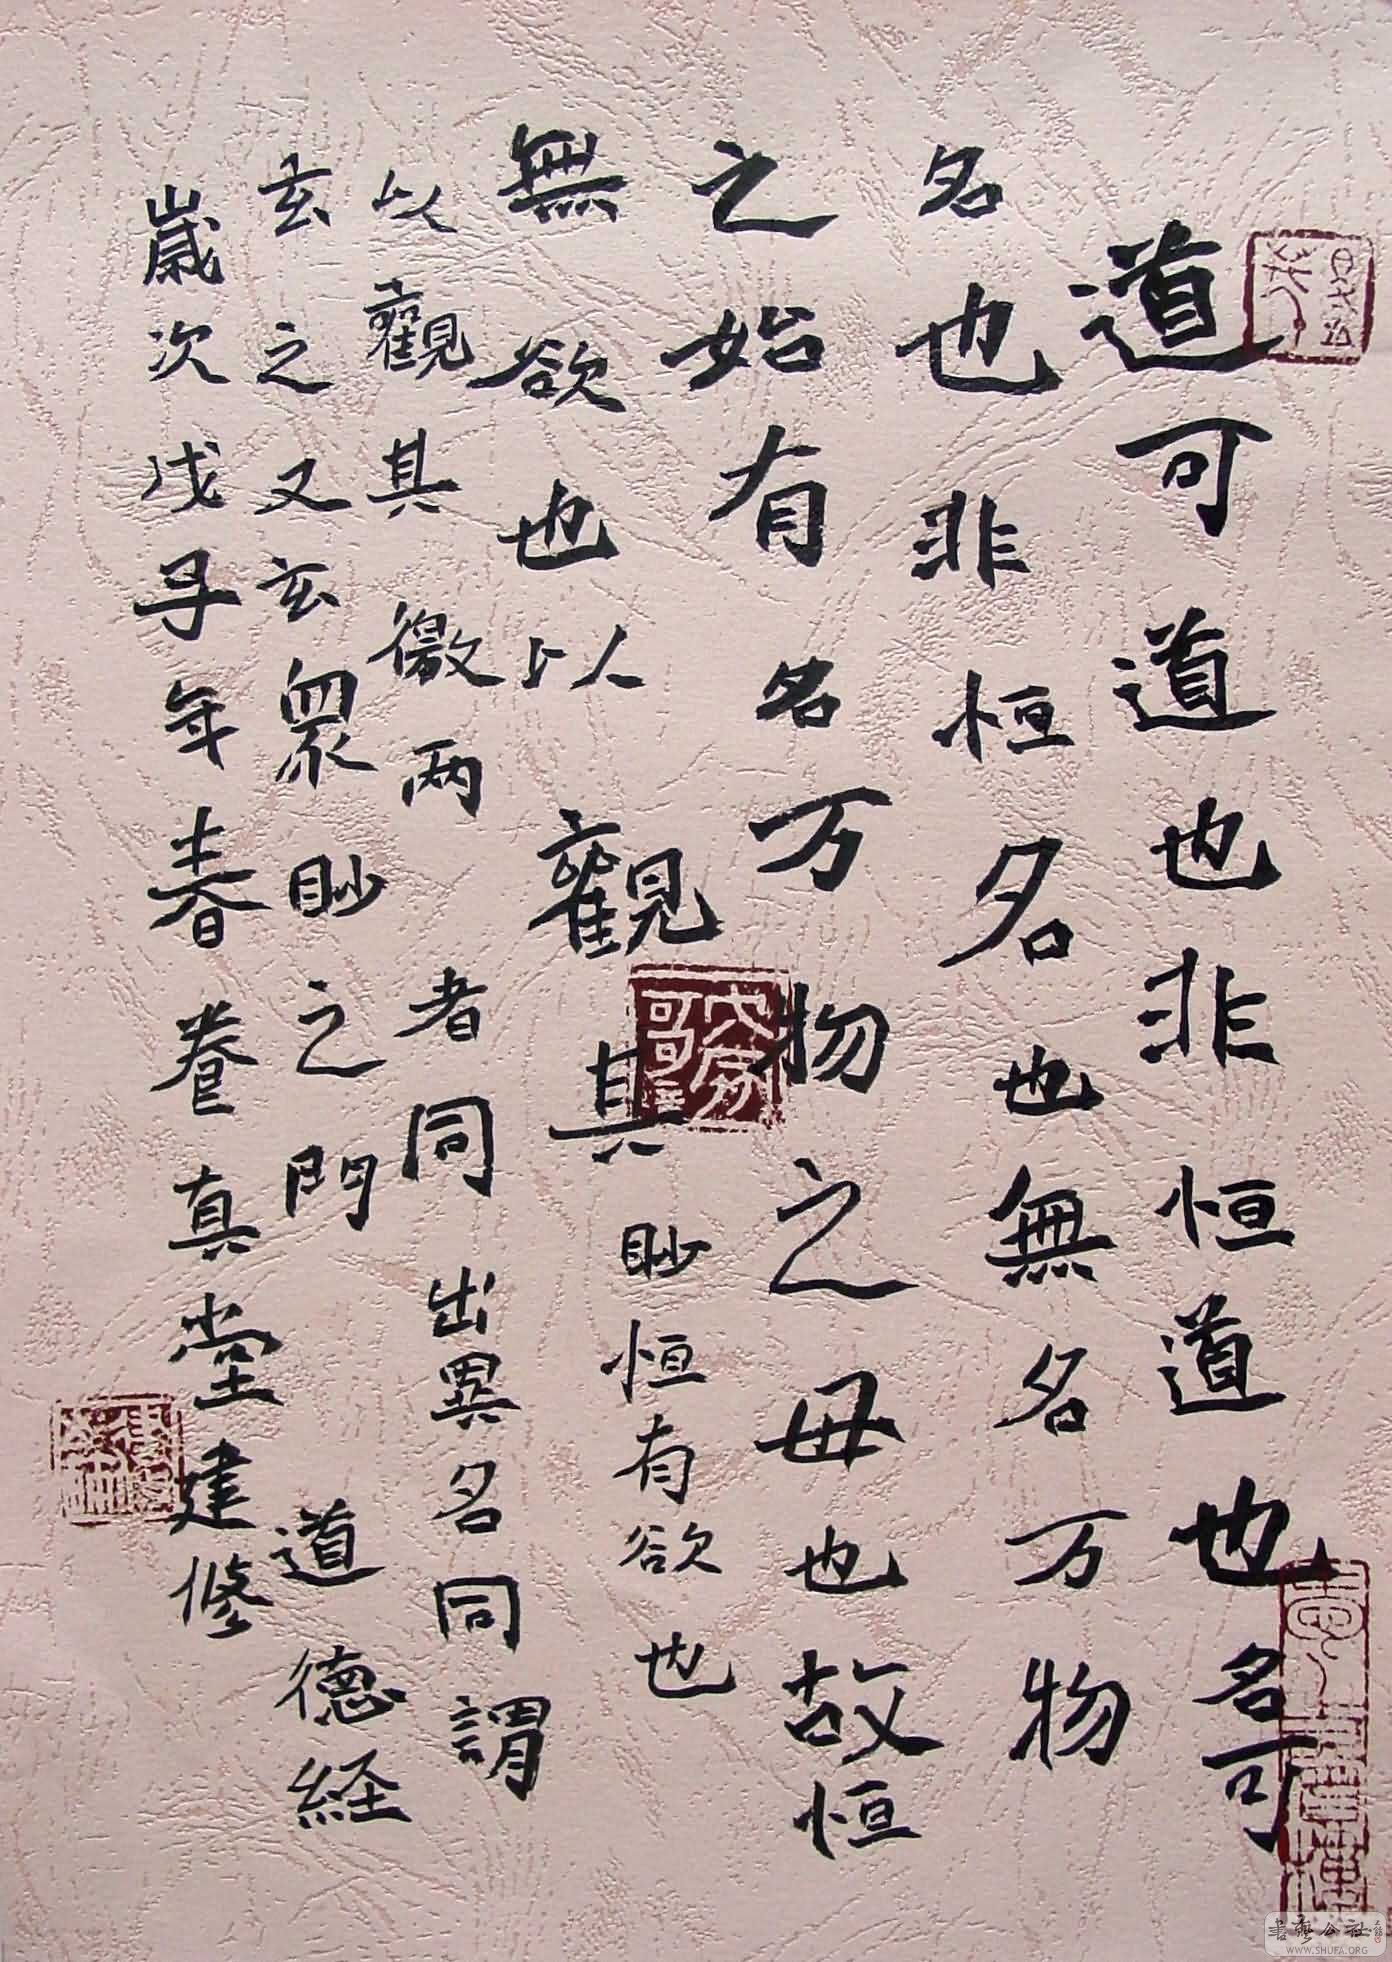 道可道也非恒道也名可
名也非恒名也無名万物
之始有名万物之母也故恒
無欲也以觀其眇恒有欲也
以觀其徼兩者同出異名同謂
玄之又玄衆眇之門 道德经
歲次戊子年春養真堂建修
書藝公社
WWW.SHUFA.ORG